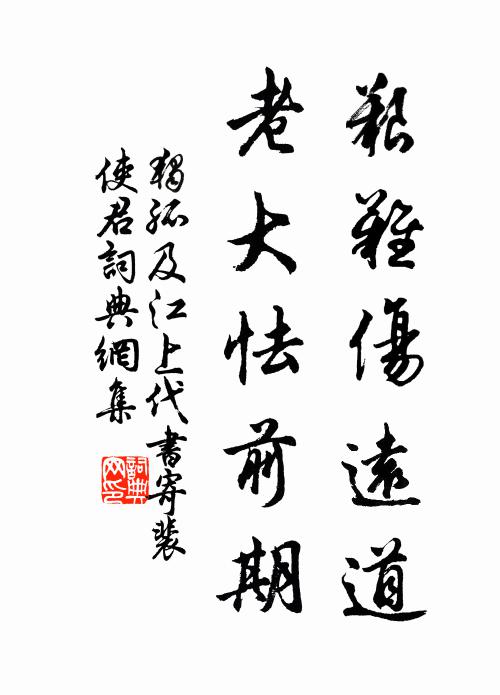 艱難傷遠道
老大怯前期
獨孤及江上代書寄裴
使君詞典網集
詞典
网印